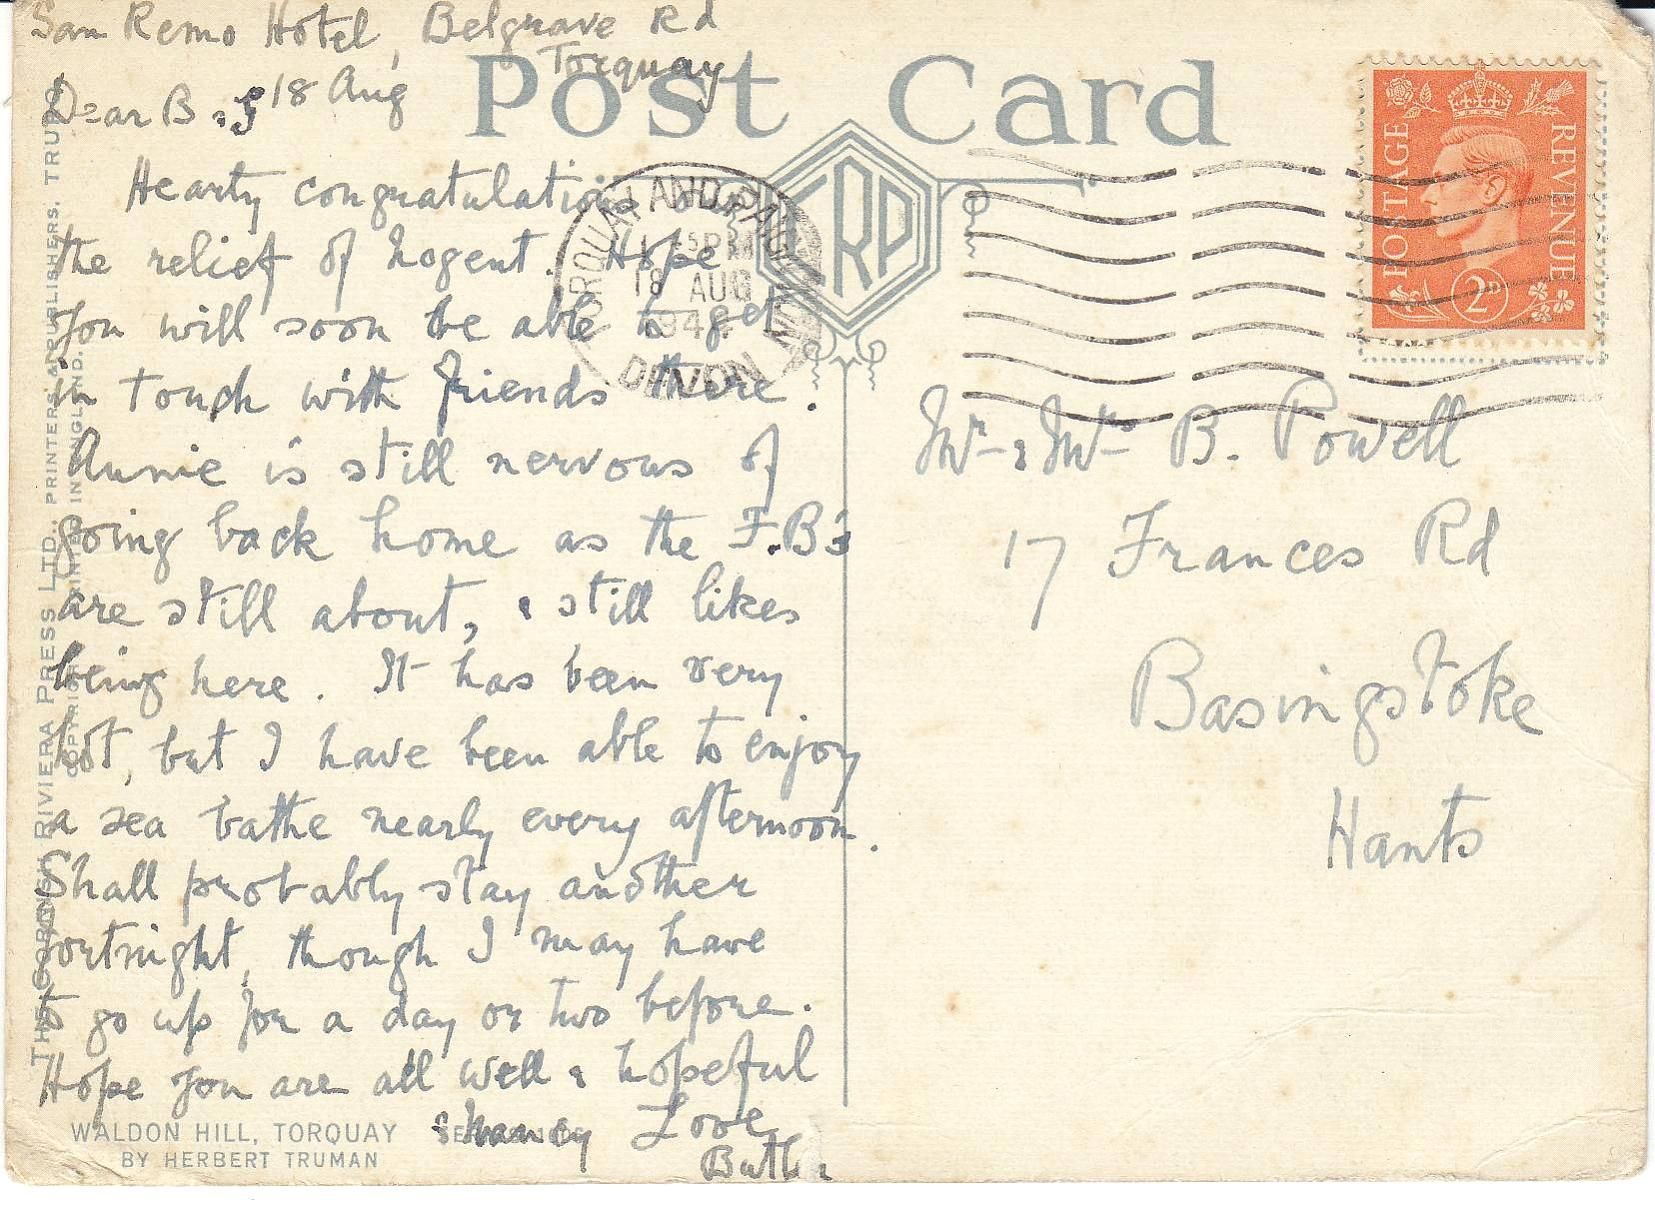 San Remo Hotel, Belgrave Rd
Torquay
18 Aug
Dear B &
Hearty congratulations on
the relief of Nogent. Hope
you will soon be able to get
in touch with friends there.
Aunie is still nervous of
going back home as the F.B's
are still about, & still likes
being here. It has been very
hot, but I have been able to enjoy
a sea bathe nearly every afternoon.
Shall probably stay another
fortnight, though I may have
to go up for a day or two before.
Hope you are all well & hopeful
Love
Post Card
RP
TORQUAY AND PAIGNTON
5 PM
18 AUG
194
DEVON
POSTAGE
REVENUE
2D
Mr & Mrs B. Powell
17 Frances Rd
Basingstoke
Hants
THE CORNISH RIVIERA PRESS LTD., PRINTERS & PUBLISHERS, TRURO
COPYRIGHT PRINTED IN ENGLAND.
WALDON HILL, TORQUAY
BY HERBERT TRUMAN